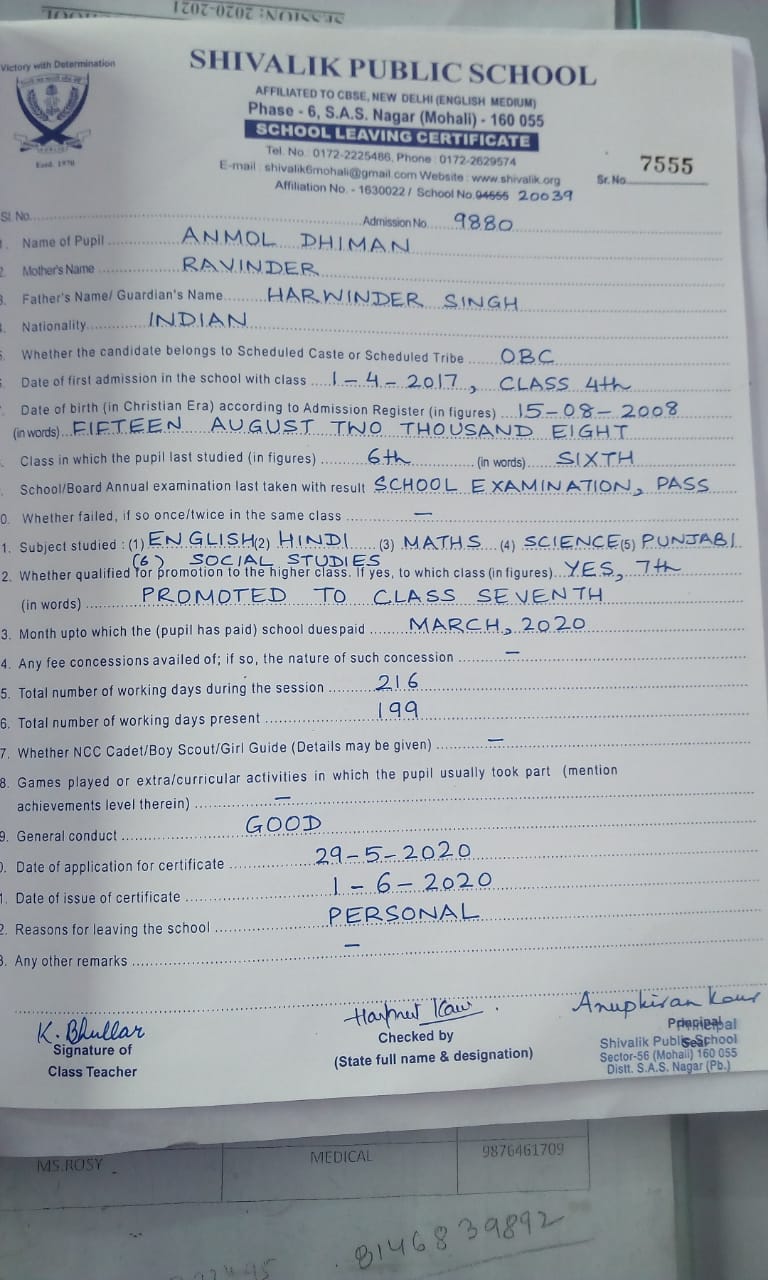 SESSION: 2020-2021
Victory with Determination
SHIVALIK PUBLIC SCHOOL
AFFILIATED TO CBSE, NEW DELHI (ENGLISH MEDIUM)
Phase - 6, S.A.S. Nagar (Mohali) - 160 055
SCHOOL LEAVING CERTIFICATE
Estd. 1970
Tel. No. 0172-2225486, Phone : 0172-2629574
E-mail : shivalik6mohali@gmail.com Website : www.shivalik.org
Affiliation No. - 1630022 / School No. 04555 20039
Sr. No. 7555
Sl. No. Admission No. 9880
. Name of Pupil ANMOL DHIMAN
2. Mother's Name RAVINDER
3. Father's Name/ Guardian's Name HARWINDER SINGH
. Nationality INDIAN
5. Whether the candidate belongs to Scheduled Caste or Scheduled Tribe OBC
Date of first admission in the school with class 1-4-2017, CLASS 4th
Date of birth (in Christian Era) according to Admission Register (in figures) 15-08-2008
(in words) FIFTEEN AUGUST TWO THOUSAND EIGHT
. Class in which the pupil last studied (in figures) 6th (in words) SIXTH
. School/Board Annual examination last taken with result SCHOOL EXAMINATION, PASS
0. Whether failed, if so once/twice in the same class —
1. Subject studied : (1) ENGLISH (2) HINDI (3) MATHS (4) SCIENCE (5) PUNJABI
(6) SOCIAL STUDIES
2. Whether qualified for promotion to the higher class. If yes, to which class (in figures) YES, 7th
(in words) PROMOTED TO CLASS SEVENTH
3. Month upto which the (pupil has paid) school duespaid MARCH, 2020
4. Any fee concessions availed of; if so, the nature of such concession —
5. Total number of working days during the session 216
6. Total number of working days present 199
7. Whether NCC Cadet/Boy Scout/Girl Guide (Details may be given) —
8. Games played or extra/curricular activities in which the pupil usually took part (mention
achievements level therein) —
9. General conduct GOOD
0. Date of application for certificate 29-5-2020
1. Date of issue of certificate 1-6-2020
2. Reasons for leaving the school PERSONAL
3. Any other remarks —
K. Bhullar
Signature of
Class Teacher
Harpreet Kaur
Checked by
(State full name & designation)
Anupkiran Kaur
Principal
Principal
Seal
Shivalik Public School
Sector-56 (Mohali) 160 055
Distt. S.A.S. Nagar (Pb.)
MS.ROSY MEDICAL 9876461709
8146839892